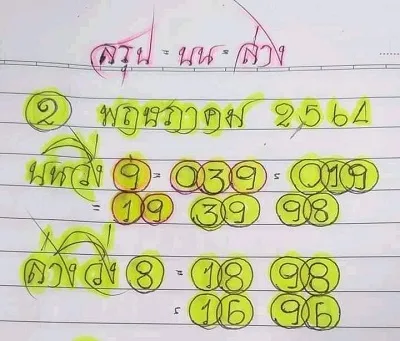 สรุป = บน = ล่าง
2 พฤษภาคม 2564
บนวิ่ง 9 = 039 = 019
= 19 39 98
ล่างวิ่ง 8 = 18 98
= 16 96